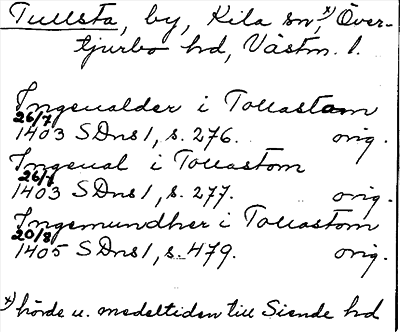 Tullsta, by, Kila sn,x) Över-
tjurbo hd, Västm. l.
Ingeualder i Tollastom
26/7 1403 SDns 1, s. 276. orig.
Ingeual i Tollastom
26/7 1403 SDns 1, s. 277. orig.
Ingemundher i Tollastom
20/8 1405 SDns 1, s. 479. orig.
x) hörde u. medeltiden till Siende hd